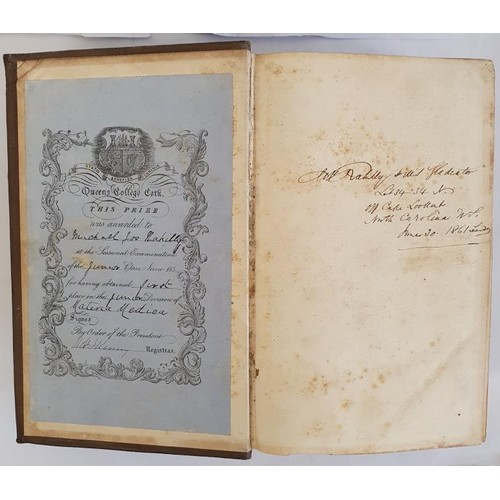 Queens College Cork.
THIS PRIZE
was awarded to
at the Sessional Examination
of the Junior Class June 185
for having obtained first
place in the Junior Division of
Materia Medica
Signed
By Order of the President
Registrar.
Rahilly
Lat 34.34 N
Off Cape Lookout
North Carolina U.S.
June 30. 1861